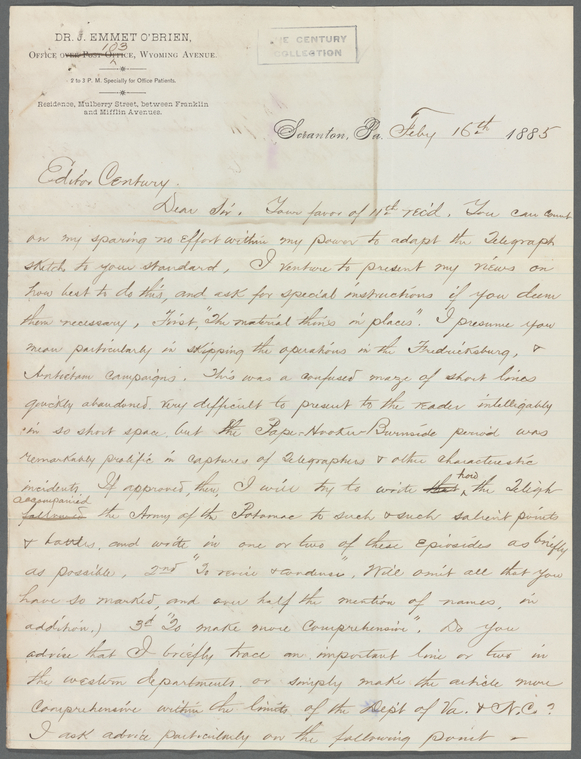 DR. J. EMMET O'BRIEN,
103
OFFICE OVER POST OFFICE, WYOMING AVENUE.
2 to 3 P. M. Specialty for Office Patients.
Residence, Mulberry Street, between Franklin
and Mifflin Avenues.
THE CENTURY
COLLECTION
Scranton, Pa. Feby 16th 1885
Editor Century.
Dear Sir. Your favor of 11th rec'd. You can count
on my sparing no effort within my power to adapt the Telegraph
sketch to your standard, I venture to present my views on
how best to do this, and ask for special instructions if you deem
them necessary, First, "The material thins in places". I presume you
mean particularly in skipping the operations in the Fredricksburg, &
Antietam campaigns. This was a confused maze of short lines
quickly abandoned, very difficult to present to the reader intelligably
in so short space but the Pope-Hooker-Burnside period was
remarkably prolific in captures of Telegraphers & other characteristic
incidents. If approved, then, I will try to write how the Telegh
accompanied
followed the Army of the Potomac to such & such salient points
& battles, and write in one or two of these Episodes as briefly
as possible, 2nd "To revise & condense", Will omit all that you
have so marked, and over half the mention of names, in
addition.) 3d "To make more Comprehensive", Do you
advise that I briefly trace an important line or two in
the western departments or simply make the article more
comprehensive within the limits of the Dept of Va. & N.C.?
I ask advice particularly on the following point -